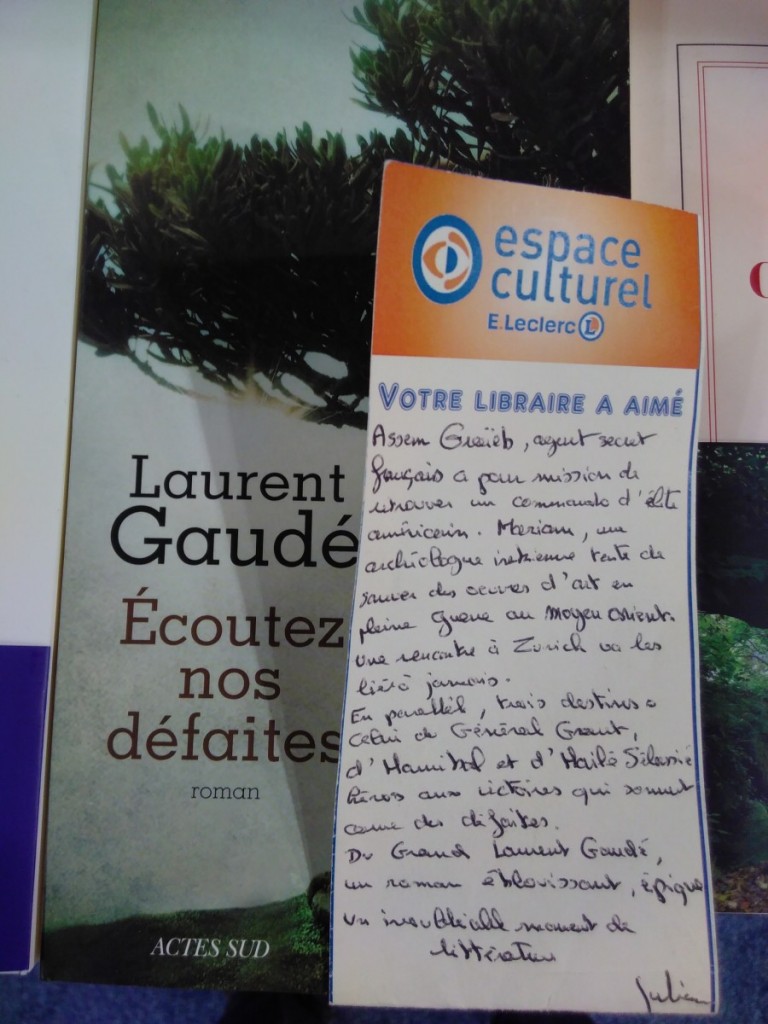 Laurent
Gaudé
Écoutez
nos
défaites
roman
ACTES SUD
espace
culturel
E.Leclerc L
VOTRE LIBRAIRE A AIMÉ
Assem Graïeb, agent secret
français a pour mission de
retrouver un commando d'élite
américain. Mariam, une
archéologue irakienne tente de
sauver des oeuvres d'art en
pleine guerre au moyen orient.
Une rencontre à Zurich va les
lier à jamais.
En parallèl, trois destins :
Celui de Général Grant,
d'Hannibal et d'Hailé Sélassié
héros aux victoires qui sonnent
comme des défaites.
Du Grand Laurent Gaudé,
un roman éblouissant, épique
Un inoubliable moment de
littérature
Julien